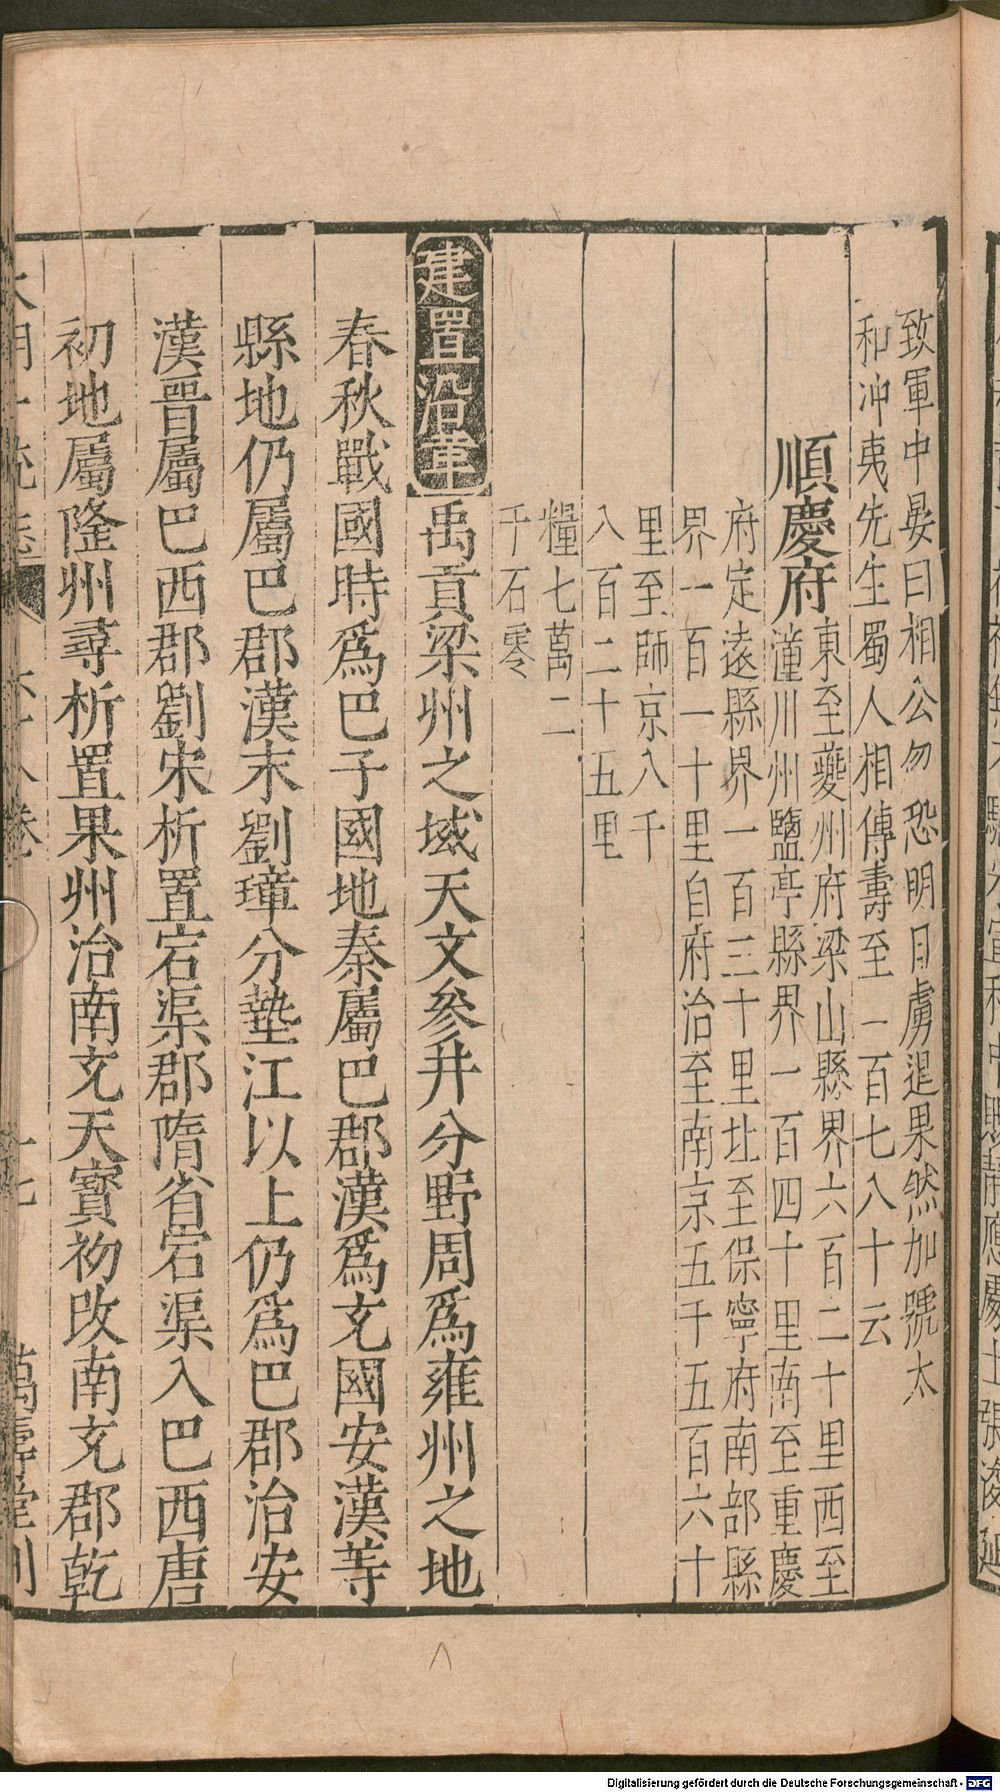 致軍中晏曰相公勿恐明日虜退果然加號太
和沖夷先生蜀人相傳壽至一百七八十云
順慶府
東至夔州府梁山縣界六百二十里西至
潼川州鹽亭縣界一百四十里南至重慶
府定遠縣界一百三十里北至保寧府南部縣
界一百一十里自府治至南京五千五百六十
里至師京八千
八百二十五里
糧七萬二
千石零
建置沿革禹貢梁州之域天文參井分野周爲雍州之地
春秋戰國時爲巴子國地秦屬巴郡漢爲充國安漢等
縣地仍屬巴郡漢末劉璋分墊江以上仍爲巴郡治安
漢晉屬巴西郡劉宋析置宕渠郡隋省宕渠入巴西唐
初地屬隆州尋析置果州治南充天寶初改南充郡乾
萬壽堂刊
Digitalisierung gefördert durch die Deutsche Forschungsgemeinschaft - DFG